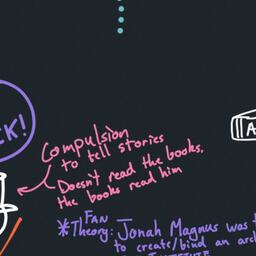 CK!
Compulsion
to tell stories
Doesn't read the books,
the books read him
A
*FAN
Theory: Jonah Magnus was
to create/bind an arc